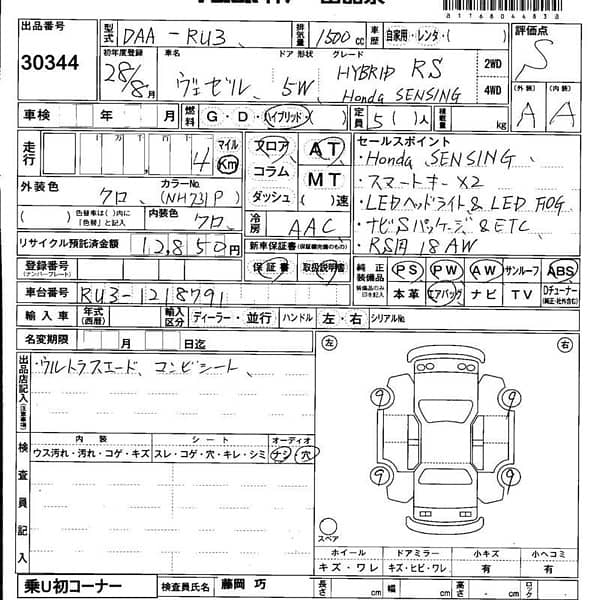 811680448838
出品番号 30344
型式 DAA - RU3、 排気量 1500cc 車歴 自家用・レンタ・( ) 評価点 S
初年度登録 28/8月 車名 ヴェゼル、 ドア 形状 5W グレード HYBRID RS Honda SENSING 2WD 4WD
外装 A 内装 A
車検 年 月 燃料 G・D・ハイブリッド・( ) 定員 5( )人 積載量 kg
走行 十万 万 千 4 マイル Km
フロア AT
コラム MT
ダッシュ ( )速
セールスポイント
・Honda SENSING、
・スマートキーX2
・LEDヘッドライト& LED FOG
・ナビSパッケージ& ETC、
・RS用 18AW
外装色 クロ、 カラーNo. (NH731P)
( ) 色替車は( )内に「色替」と記入 内装色 クロ、
冷房 AAC
リサイクル預託済金額 12,850円
新車保証書(保証継続可能のもの)
保証書 取扱説明書
登録番号(ナンバープレート)
純正装備品 装備品のみ○印を記入 PS PW AW サンルーフ ABS
本革 エアバッグ ナビ TV Dチューナー(純正・社外含む)
車台番号 RU3-1218791
輸入車 年式(西暦) 輸入区分 ディーラー・並行 ハンドル 左・右 シリアル№
名変期限 月 日迄
出品店記入(注意事項)
・ウルトラスエード、コンビシート、
左 右
9 9
9 9
スペア
検査員記入
内装 シート オーディオ
ウス汚れ・汚れ・コゲ・キズ スレ・コゲ・穴・キレ・シミ ナシ・穴
ホイール ドアミラー 小キズ 小ヘコミ
キズ・ワレ キズ・ヒビ・ワレ 有 有
乗U初コーナー 検査員氏名 藤岡 巧 長さ cm 幅 cm 高さ cm ロック